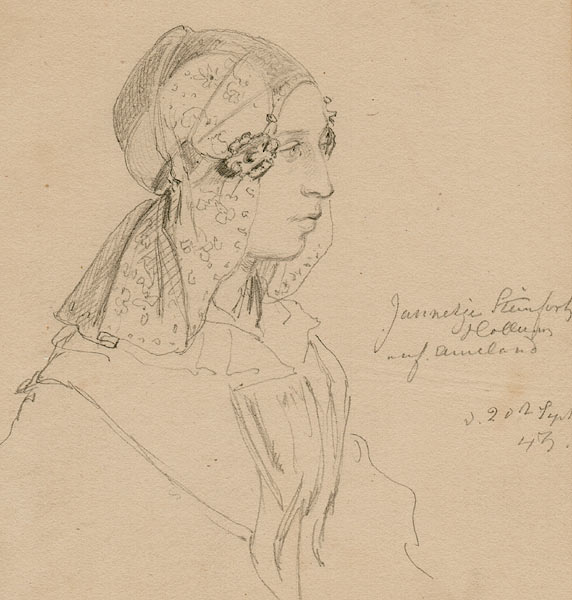 Jannetje Steinfort
Hollum
auf Ameland
d. 20t Sept
43.